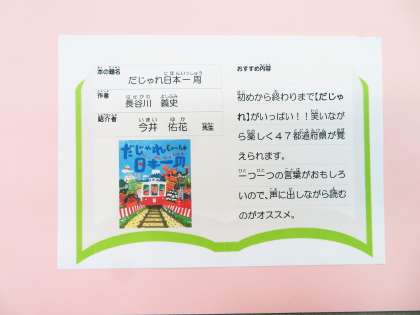 本の題名
だじゃれ日本一周
作者
長谷川 義史
紹介者
今井 佑花 先生
だじゃれ
日本一周
おすすめ内容
初めから終わりまで【だじゃ
れ】がいっぱい！！笑いなが
ら楽しく４７都道府県が覚
えられます。
一つ一つの言葉がおもしろ
いので、声に出しながら読む
のがオススメ。